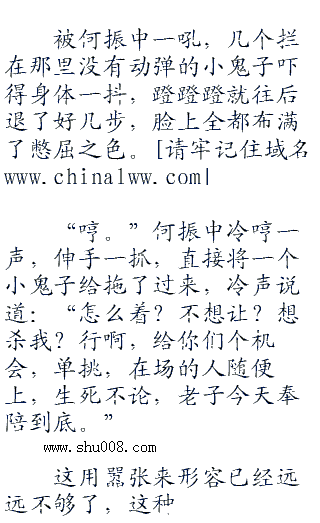 被何振中一吼，几个拦
在那里没有动弹的小鬼子吓
得身体一抖，蹬蹬蹬就往后
退了好几步，脸上全都布满
了憋屈之色。[请牢记住域名
www.china1ww.com|
“哼。”何振中冷哼一
声，伸手一抓，直接将一个
小鬼子给拖了过来，冷声说
道：“怎么着？不想让？想
杀我？行啊，给你们个机
会，单挑，在场的人随便
上，生死不论，老子今天奉
陪到底。”
www.shu008.com
这用嚣张来形容已经远
远不够了，这种